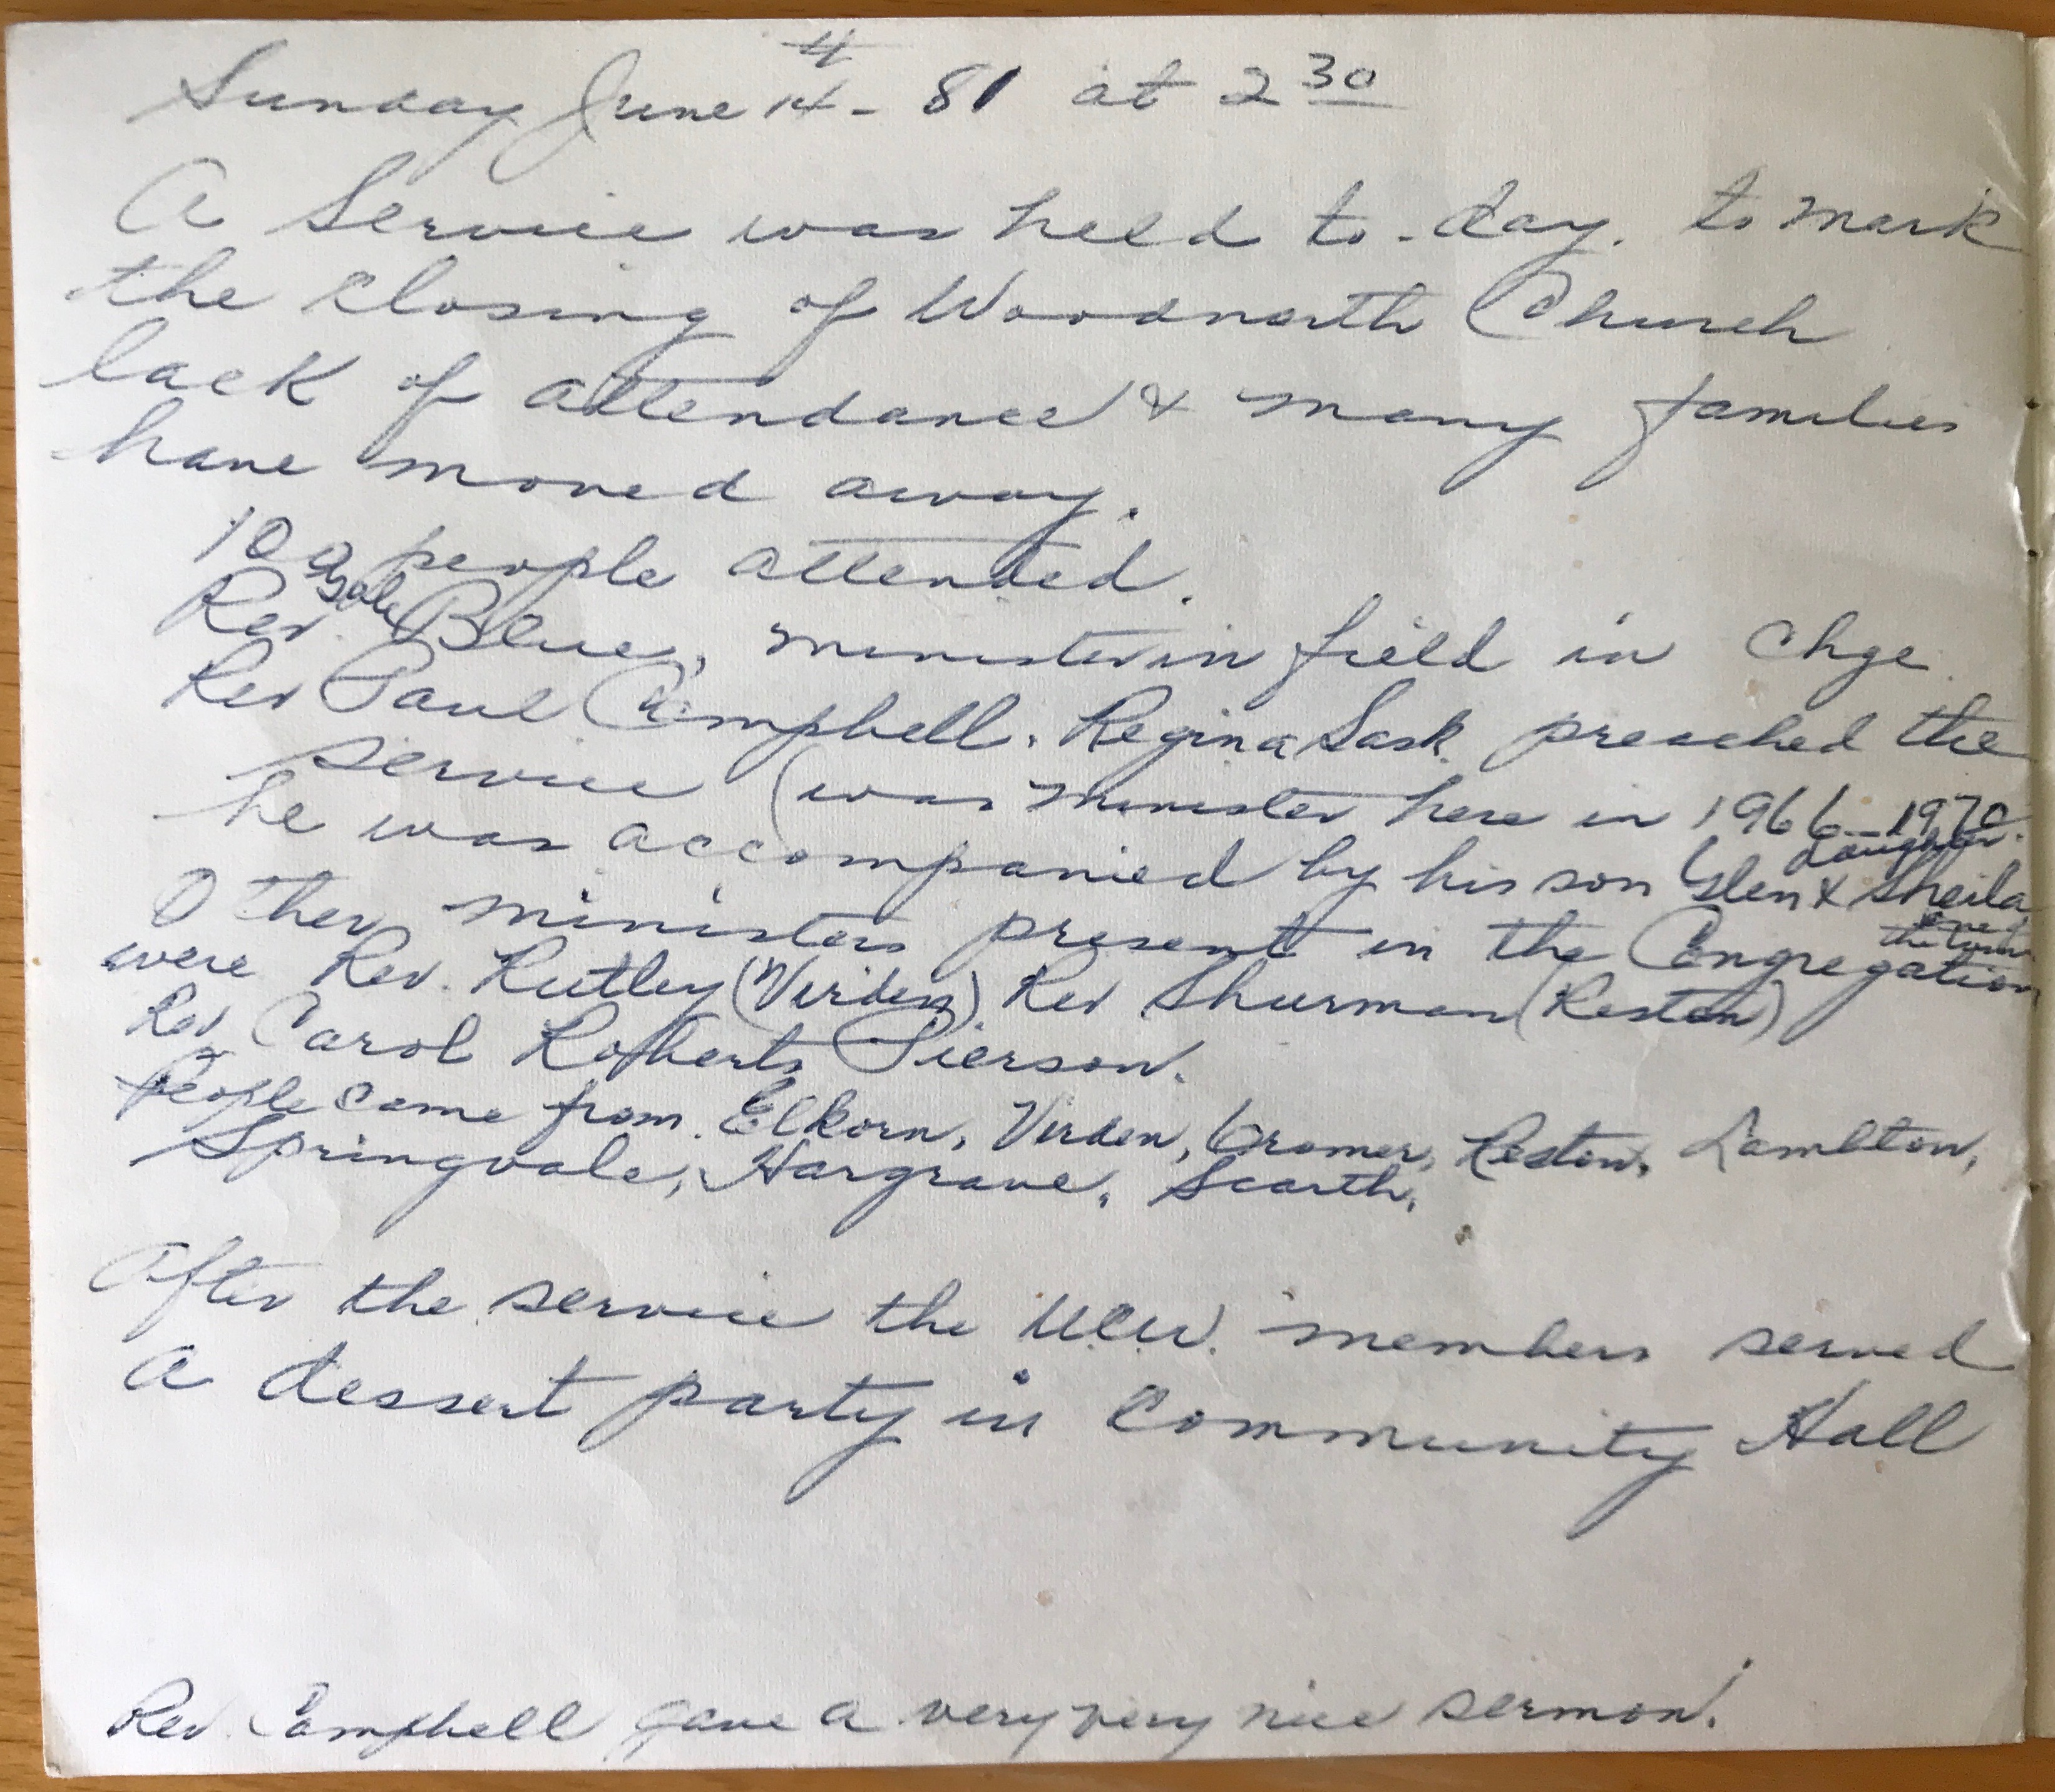 Sunday June 14th - 81 at 2 30
A Service was held to-day. to mark
the closing of Woodnorth Church
lack of attendance & many families
have moved away.
100 people attended.
Rev. Blue, minister in field in chge
Rev Paul Campbell. Regina Sask. preached the
service (was minister here in 1966-1970.
he was accompanied by his son Glen & daughter Sheila,
Other ministers present in the Congregation
were Rev. Rutley (Virden) Rev Shurman (Reston)
Rev. Carol Roberts Pierson.
People came from Elkorn, Virden, Cromer, Reston, Lambton,
Springvale, Hargrave, Scarth.
After the service the U.C.W. members served
a dessert party in Community Hall
Rev. Campbell gave a very very nice sermon.